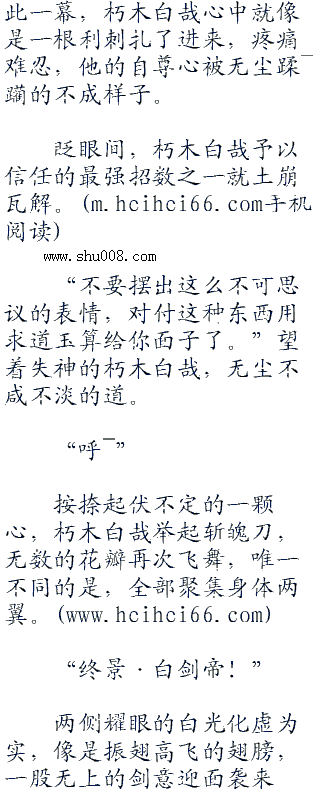 此一幕，朽木白哉心中就像
是一根利刺扎了进来，疼痛
难忍，他的自尊心被无尘蹂
躏的不成样子。
眨眼间，朽木白哉予以
信任的最强招数之一就土崩
瓦解。(m.hcihci66.com手机
阅读)
www.shu008.com
“不要摆出这么不可思
议的表情，对付这种东西用
求道玉算给你面子了。”望
着失神的朽木白哉，无尘不
咸不淡的道。
“呼¯”
按捺起伏不定的一颗
心，朽木白哉举起斩魄刀，
无数的花瓣再次飞舞，唯一
不同的是，全部聚集身体两
翼。(www.hcihci66.com)
“终景·白剑帝！”
两侧耀眼的白光化虚为
实，像是振翅高飞的翅膀，
一股无上的剑意迎面袭来